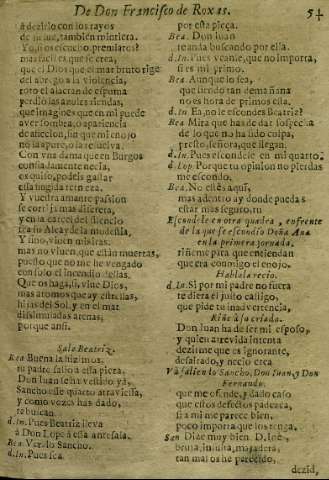 De Don Francisco de Roxas.
à dezirlo con los rayos
de su luz, tambien mintiera.
Yo, si os escucho, premiares?
mas facil es que se crea,
que el Dios que el mar bruto rige
del abrego a la violencia,
roto el alacran de espuma
perdiò las azules riendas,
que imagineis que en mi puede
aver sombra, o apariencia
de aficion, sin que mi enojo
no la apure, o la resuelva.
Con vna dama que en Burgos
confiadamente necia,
Y vuestra amante passion
en la carcel del silencio
sea su Alcayde la modestia.
mas no viuen, que estàn muertas,
puesto que no me he vengado
con solo el incendio dellas.
Que os haga, si, viue Dios,
mas atomos que ay estrellas,
hijas del Sol, y en el mar
dissimuladas arenas,
porque ansi.
Sale Beatriz.
Bea. Buena la hizimos,
tu padre saliò à esta pieza,
Don Juan se ha vestido yà,
Sancho esse quarto atraviessa,
y como vozes han dado,
te buscan.
d.In. Pues Beatriz lleva
à Don Lope à essa antesala.
Bea. Veràlo Sancho.
d.In. Pues sea
por esta pieça.
Bea. Don Juan
te anda buscando por ella.
d.In. Pues veanle, que no importa,
si es mi primo.
Bea. Aunque lo sea,
que siendo tan de mañana
no es hora de primos esta.
d.In Ea, no le escondes Beatriz?
Bea Mira que han de dar sospecha
de lo que no ha sido culpa,
presto, señora, que llegan.
d.In. Pues escondele en mi quarto.
d.Lop. Por que tu opinion no pierdas
me escondo.
Bea. No estès aqui,
mas adentro ay donde puedas
estar mas seguro.
Escondele en otra quadra, enfrente
de la que se escondiò Doña Ana
en la primera jornada.
riñeme pira que entiendan
que era conmigo el enojo.
Habla la recio.
d.In. Si por mi padre no fuera
te diera el justo castigo,
que pide tu inadvertencia,
Riñe à la criada.
Don Juan ha de ser mi esposo,
y quien atrevida intenta
dezirme que es ignorante,
desairado, y necio crea
Và saliendo Sancho, Don Juan, y Don
Fernando.
que me ofende, y dado caso
que estos defectos padezca,
si a mi me parece bien,
poco importa que los tenga.
San Dize muy bien D. Inès,
tan mal os he parecido,
dezid,